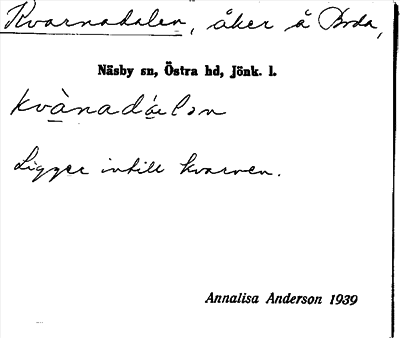 Kvarnadalen, åker å Boda,
Näsby sn, Östra hd, Jönk. l.
kvànadá̤lən
Ligger intill kvarnen.
Annalisa Anderson 1939